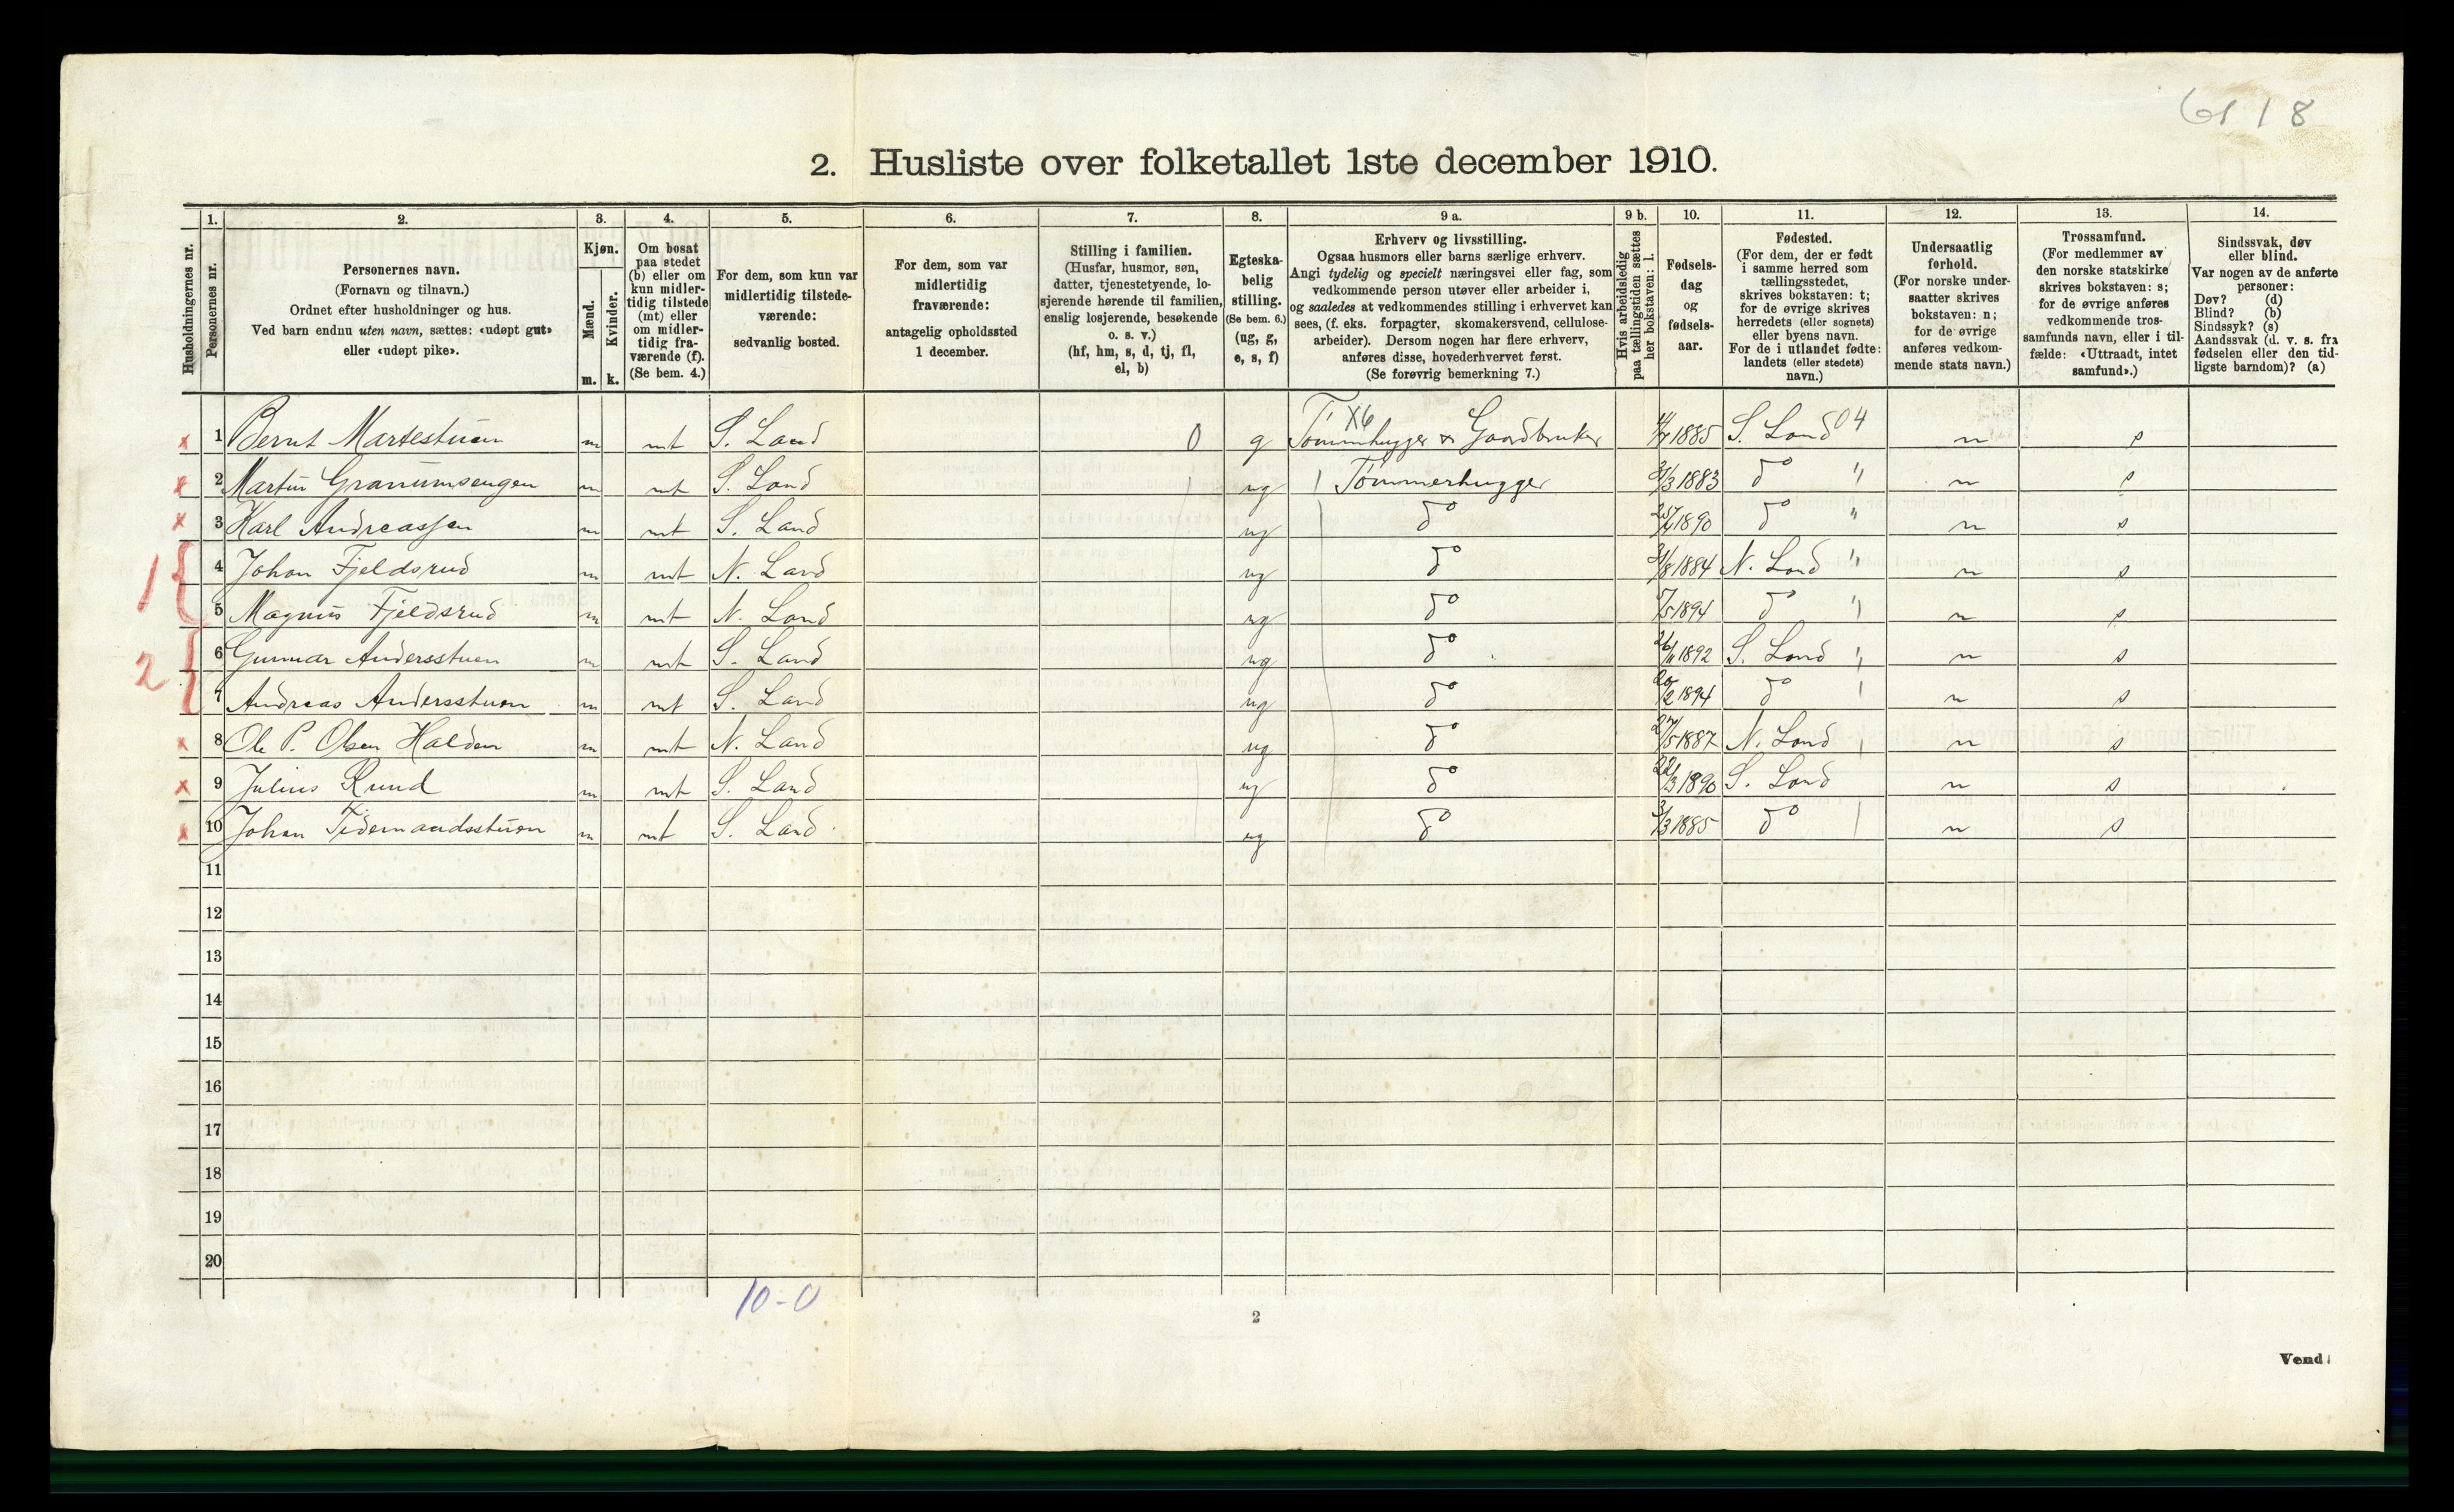 6118
2. Husliste over folketallet 1ste december 1910.
1. 2. 3. 4. 5. 6. 7. 8. 9 a. 9 b. 10. 11. 12. 13. 14.
Husholdningernes nr.
Personernes nr.
Personernes navn.
(Fornavn og tilnavn.)
Ordnet efter husholdninger og hus.
Ved barn endnu uten navn, sættes: «udøpt gut»
eller «udøpt pike».
Kjøn.
Mænd.
Kvinder.
m. k.
Om bosat
paa stedet
(b) eller om
kun midler-
tidig tilstede
(mt) eller
om midler-
tidig fra-
værende (f).
(Se bem. 4.)
For dem, som kun var
midlertidig tilstede-
værende:
sedvanlig bosted.
For dem, som var
midlertidig
fraværende:
antagelig opholdssted
1 december.
Stilling i familien.
(Husfar, husmor, søn,
datter, tjenestetyende, lo-
sjerende hørende til familien,
enslig losjerende, besøkende
o. s. v.)
(hf, hm, s, d, tj, fl,
el, b)
Egteska-
belig
stilling.
(Se bem. 6.)
(ug, g,
e, s, f)
Erhverv og livsstilling.
Ogsaa husmors eller barns særlige erhverv.
Angi tydelig og specielt næringsvei eller fag, som
vedkommende person utøver eller arbeider i,
og saaledes at vedkommendes stilling i erhvervet kan
sees, (f. eks. forpagter, skomakersvend, cellulose-
arbeider). Dersom nogen har flere erhverv,
anføres disse, hovederhvervet først.
(Se forøvrig bemerkning 7.)
Hvis arbeidsledig
paa tællingstiden sættes
her bokstaven: l.
Fødsels-
dag
og
fødsels-
aar.
Fødested.
(For dem, der er født
i samme herred som
tællingsstedet,
skrives bokstaven: t;
for de øvrige skrives
herredets (eller sognets)
eller byens navn.
For de i utlandet fødte:
landets (eller stedets)
navn.)
Undersaatlig
forhold.
(For norske under-
saatter skrives
bokstaven: n;
for de øvrige
anføres vedkom-
mende stats navn.)
Trossamfund.
(For medlemmer av
den norske statskirke
skrives bokstaven: s;
for de øvrige anføres
vedkommende tros-
samfunds navn, eller i til-
fælde: «Uttraadt, intet
samfund».)
Sindssvak, døv
eller blind.
Var nogen av de anførte
personer:
Døv? (d)
Blind? (b)
Sindssyk? (s)
Aandssvak (d. v. s. fra
fødselen eller den tid-
ligste barndom)? (a)
x 1 Bernt Martestuen m mt S. Land 0 g X6 Tømmerhugger & Gaardbruker 1885 S. Land 04 n s
x 2 Martin Granumsengen m mt S. Land ug Tømmerhugger 1883 do " n s
x 3 Karl Andreassen m mt S. Land ug do 1890 do " n s
1{ 4 Johan Fjeldsrud m mt N. Land ug do 31/8 1884 N. Land " n s
5 Magnus Fjeldsrud m mt N. Land ug do 1894 do " n s
2{ 6 Gunnar Andersstuen m mt S. Land ug do 26/11 1892 S. Land " n s
7 Andreas Andersstuen m mt S. Land ug do 20/2 1894 do n s
x 8 Ole P. Olsen Halden m mt N. Land ug do 27/5 1887 N. Land n s
x 9 Julius Rund m mt S. Land ug do 22/3 1890 S. Land n s
x 10 Johan Tidemandsstuen m mt S. Land ug do 3/3 1885 do n s
11
12
13
14
15
16
17
18
19
20
10-0
2
Vend!